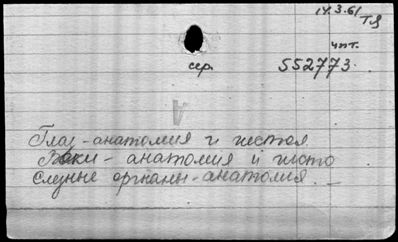 14.3.61
ТЯ
чит.
сер. 552773.
Глаз - анатомия и гистол.
Веки - анатомия и гисто
Слезные органы - анатомия. —